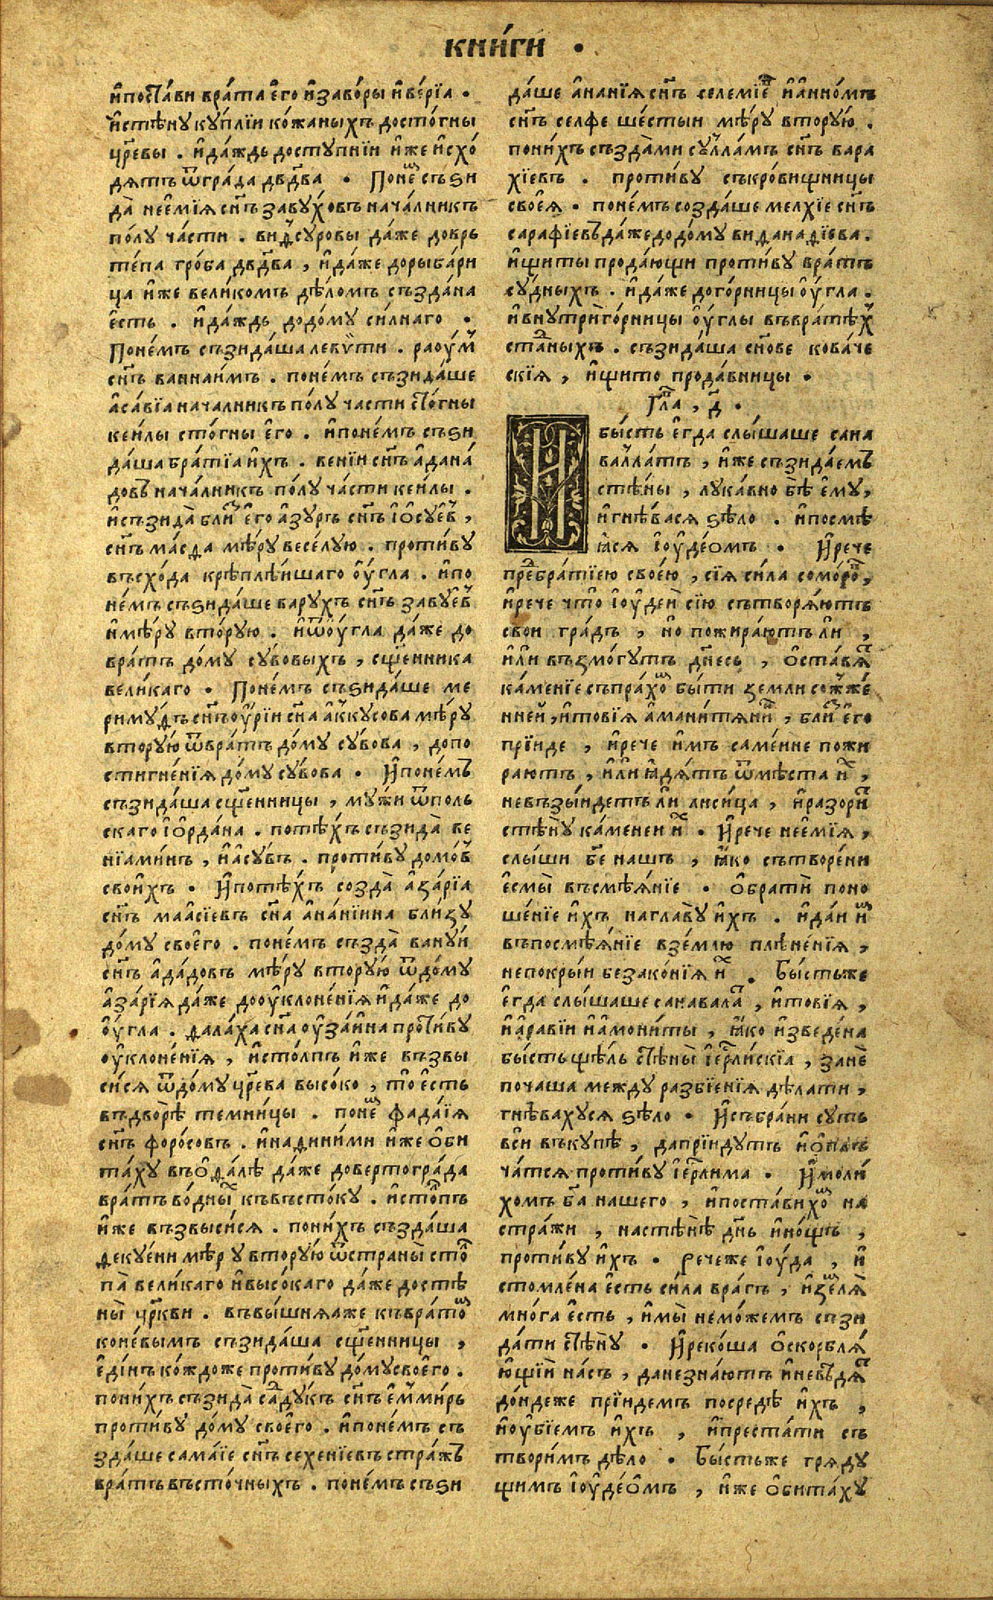 КНИ́ГИ •
и҆поста́ви врата̀ є҆го̀ и҆заво́ры и҆ве́рїа •
и҆стѣ́ну кꙋ́плїи ко́жаныхъ досто́гны
цр҃евы . и҆да́ждь достꙋпнїи и҆́же и҆схо́
дѧтъ ѿгра́да дв҃два • Поне́ⷨ съѕи
да̀ неє҆мі́ѧ сн҃ъ завꙋ́ховъ нача́лникъ
по́лꙋ ча́сти . виⷣсꙋровы да́же добрь
те́па гро́ба дв҃два , и҆да́же дорыба́ри
ца и҆́же вели́комъ дѣ́ломъ създа́на
є҆́сть . и҆да́ждь додо́мꙋ си́лнаго •
Поне́мъ съзида́ша леви́ти . раоу́ⷨ
сн҃ъ ваннаи́мъ . поне́мъ съзида́ше
а҆са́вїа нача́лникъ по́лꙋ части сто́гны
кеи́лы сто́гны є҆го̀ . и҆поне́мъ съѕи
да́ша бра́тїа и҆́хъ . вені́и сн҃ъ а҆дана́
довъ нача́лникъ по́лꙋ ча́сти кеи́лы .
и҆съзида̀ блиⷥ є҆го̀ а҆зꙋ́ръ сн҃ъ і҆ѻсꙋе́въ ,
сн҃ъ ма́сда мѣ́рꙋ весе́лꙋю . проти́вꙋ
въсхо́да крѣплѣ́ишаго ѹ҆́гла . и҆по
не́мъ съѕида́ше варꙋ́хъ сн҃ъ завꙋе́въ
и҆мѣ́рꙋ вто́рꙋю . и҆ѿѹ҆́гла да́же до
вра́тъ до́мꙋ сꙋ́вовыхъ , сщ҃е́нника
вели́каго • Поне́мъ съѕида́ше ме
римꙋ́дъ сн҃ъ ѹ҆рі́и сн҃а а҆́ккꙋсова мѣ́рꙋ
вторꙋ́ю ѿвра́тъ до́мꙋ сꙋ́вова , допо
стигне́нїѧ до́мꙋ сꙋ́вова • И҆поне́мъ
съзида́ша сщ҃е́нницы , мꙋ́жи ѿполь
скаго і҆ѻрда́на . потѣ́хъ съзида̀ ве
нїами́нъ , и҆а҆сꙋ́въ . проти́вꙋ домо́въ
свои́хъ • И҆потѣ́хъ созда̀ а҆за́рїа
сн҃ъ маасі́евъ сн҃а а҆на́нїина бли́зꙋ
до́мꙋ своего̀ . поне́мъ създа̀ ванꙋ́и
сн҃ъ а҆да́довъ мѣ́рꙋ вторꙋ́ю ѿдо́мꙋ
а҆за́рїѧ да́же доѹ҆клоне́нїѧ и҆да́же до
ѹ҆́гла . дала́ха сн҃а ѹ҆за́ина проти́вꙋ
ѹ҆клоне́нїѧ , и҆сто́лпъ и҆́же възвы
си́сѧ ѿдо́мꙋ цр҃ева высо́ко , то̀ є҆́сть
въдво́рѣ темни́цы . поне́ⷨ фада́їѧ
сн҃ъ форо́совъ . и҆надини́ми и҆́же ѻ҆би
та́хꙋ въѻ҆да́лѣ да́же довертогра́да
вра́тъ во́дныⷯ къвъсто́кꙋ . и҆сто́пъ
и҆́же възвыси́сѧ . пони́хъ създа́ша
декꙋ́ени мѣ́рꙋ вторꙋ́ю ѿстраны̀ стоⷧ
па̀ вели́каго и҆высо́каго да́же достѣ
ны̀ цр҃кви . въвы́шнѧѧже къврато́ⷨ
коне́вымъ съзида́ша сщ҃е́нницы ,
є҆ди́нъ ко́ждоже проти́вꙋ до́мꙋ своего̀ .
пони́хъ съзида̀ саⷣдꙋ́къ сн҃ъ є҆́ммирь
проти́вꙋ до́мꙋ своего̀ . и҆поне́мъ съ
зда́ше сама́їе сн҃ъ сехені́евъ стра́жъ
вра́тъ въсто́чныхъ . поне́мъ съѕи
да́ше а҆на́нїѧ сн҃ъ селемі́еⷡ и҆а҆нно́мъ
сн҃ъ селфе ше́стыи мѣ́рꙋ вторꙋ́ю .
пони́хъ създа́ми сꙋлла́мъ сн҃ъ вара
хі́евъ . проти́вꙋ съкро́вищницы
своеѧ̀ • поне́мъ созда́ше мелхі́е сн҃ъ
сарафі́евъ да́же додо́мꙋ виданаді́ева .
и҆щиты̀ продаю́щи проти́вꙋ вра́тъ
сꙋ́дныхъ . и҆да́же дого́рницы ѹ҆́гла .
и҆внꙋтрѝ го́рницы ѹ҆́глы въвратѣ́хъ
ста́ⷣныхъ . съзида́ша сн҃ове кова́че
скїѧ , и҆щито прода́вницы •
Гла҃ , д҃ •
И
бы́сть є҆гда̀ слы́шаше сана
валла́тъ , и҆́же съзида́емъ
стѣ́ны , лꙋка́вно бѣ̀ є҆мꙋ̀,
и҆гнѣ́васѧ ѕѣло̀ . и҆посмѣ
ꙗ́сѧ і҆ѹде́ѻмъ • И҆рече
преⷣбра́тїею свое́ю , сїѧ̀ си́ла соморо́ⷩ,
и҆рече что̀ і҆ѹде́и сїю̀ сътворѧ́ютъ
свои гра́дъ , но пожира́ютъ ли ,
и҆лѝ възмо́гꙋтъ дн҃есь , ѡ҆ста́вѧⷮ
ка́менїе съпра́хоⷨ бы́ти землѝ сожже́
нней, и҆тові́ѧ а҆мани́тѧниⷩ , блиⷥ є҆го̀
прїи́де , и҆рече и҆̀мъ саме́ине пожи
ра́ютъ , и҆лѝ ꙗ҆дѧ́тъ ѿмѣ́ста и҆ⷯ ,
невъзы́идетъ ли лиси́ца , и҆разори́ⷮ
стѣ́нꙋ ка́менеи и҆ⷯ • И҆рече неє҆мі́ѧ ,
слы́ши бж҃е на́шъ , ꙗ҆́ко сътворе́ни
є҆смы̀ въсмѣѧ́нїе • Ѻ҆братѝ поно
ше́нїе и҆́хъ наглавꙋ̀ и҆́хъ . и҆да́и и҆ⷨ
въпосмѣѧ́нїе взе́млю плѣне́нїѧ ,
непокры́и безако́нїѧ и҆ⷯ . Бы́стьже
є҆гда̀ слы́шаше санавала́ⷮ , и҆тові́ѧ ,
и҆а҆рави́и и҆а҆мони́ты , ꙗ҆́ко и҆зведе́на
бы́сть цѣ́ль стѣны̀ і҆е҆рⷭ҇ли́скїа , занѐ
поча́ша междꙋ разбїе́нїѧ дѣ́лати ,
гнѣ́вахꙋсѧ ѕѣло̀ • И҆събра́ни сꙋ́ть
всѝ въкꙋ́пѣ , дапрїи́дꙋтъ и҆ѻ҆пль
ча́тсѧ проти́вꙋ і҆е҆рⷭ҇ли́ма • И҆моли́
хомъ бг҃а на́шего , и҆поста́вихоⷨ на
стра́жи , настѣ́нѣ дн҃ь и҆но́щъ ,
проти́вꙋ и҆́хъ • Рече́же і҆ѹ́да , и҆
стомле́на є҆́сть си́ла вра́гъ , и҆земⷧѧ̀
мно́га є҆́сть , и҆мы̀ немо́жемъ съзи
да́ти стѣ́нꙋ • И҆реко́ша ѻ҆скорблѧ́
ю҆щїи на́съ , данезна́ютъ и҆невѣ́дѧⷮ
до́ндеже прїи́демъ посредѣ̀ и҆́хъ ,
и҆ѹ҆бїе́мъ и҆́хъ , и҆преста́ти съ
твори́мъ дѣ́ло • Бы́стьже грѧдꙋ́
щимъ і҆ѹде́ѻмъ , и҆́же ѻ҆бита́хꙋ